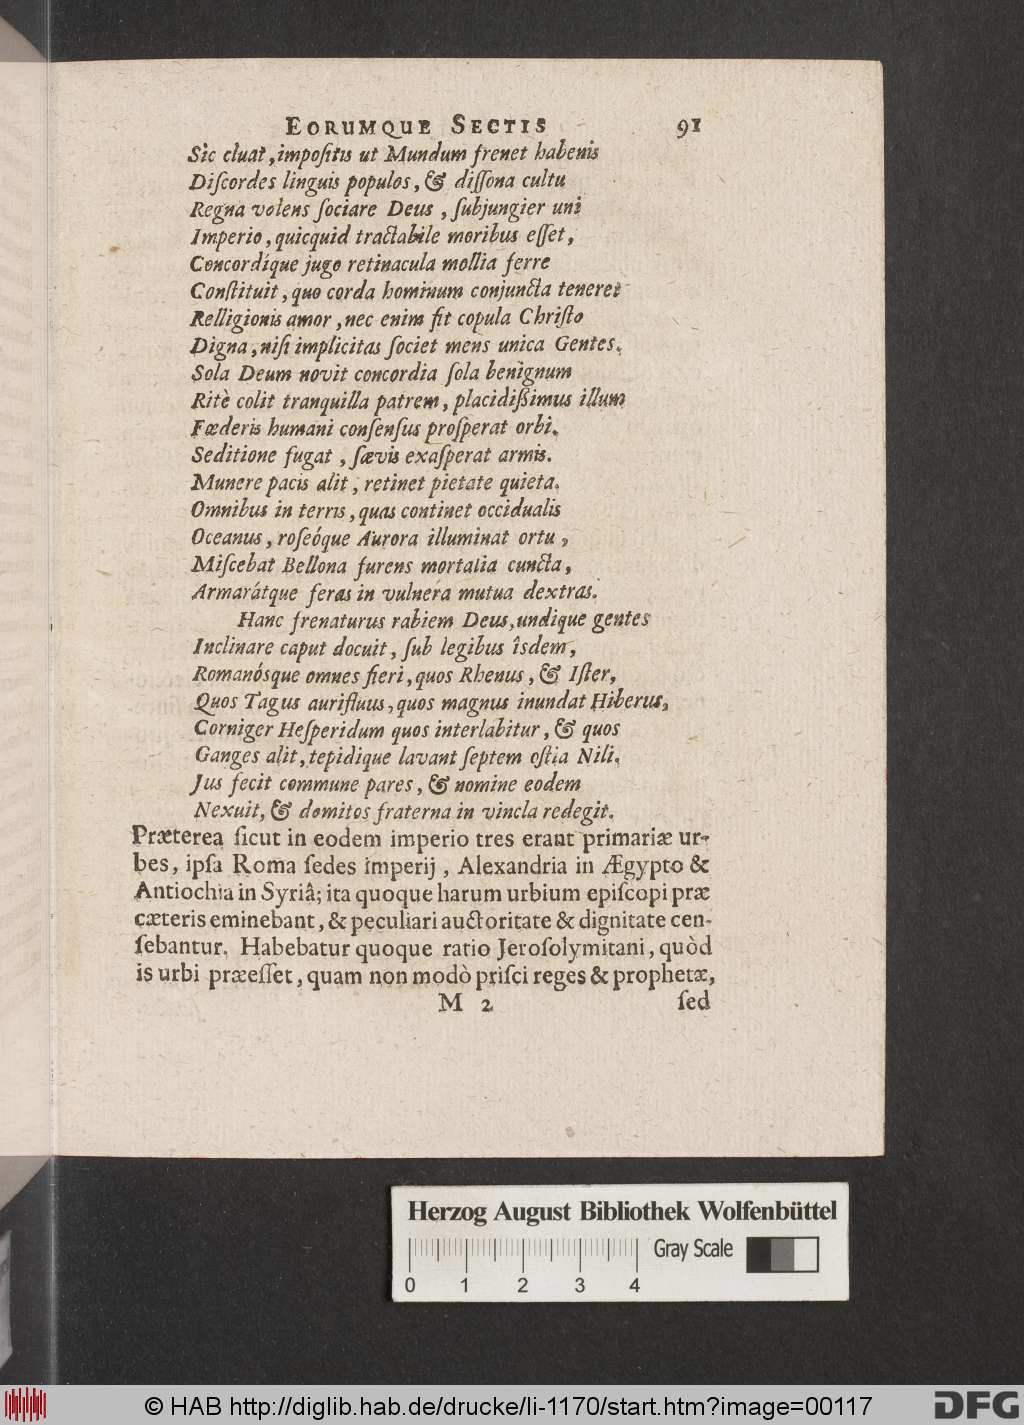 EORUMQUE SECTIS 91
Sic cluat, impoſitis ut Mundum frenet habenis
Diſcordes linguis populos, & diſſona cultu
Regna volens ſociare Deus, ſubjungier uni
Imperio, quicquid tractabile moribus eſſet,
Concordíque jugo retinacula mollia ferre
Conſtituit, quo corda hominum conjuncta teneret
Relligionis amor, nec enim fit copula Chriſto
Digna, niſi implicitas ſociet mens unica Gentes.
Sola Deum novit concordia ſola benignum
Ritè colit tranquilla patrem, placidißimus illum
Fœderis humani conſenſus proſperat orbi.
Seditione fugat, ſævis exaſperat armis.
Munere pacis alit, retinet pietate quieta.
Omnibus in terris, quas continet occidualis
Oceanus, roſeóque Aurora illuminat ortu,
Miſcebat Bellona furens mortalia cuncta,
Armarátque feras in vulnera mutua dextras.
Hanc frenaturus rabiem Deus, undique gentes
Inclinare caput docuit, ſub legibus îsdem,
Romanósque omnes fieri, quos Rhenus, & Iſter,
Quos Tagus aurifluus, quos magnus inundat Hiberus,
Corniger Heſperidum quos interlabitur, & quos
Ganges alit, tepidique lavant ſeptem oſtia Nili.
Jus fecit commune pares, & nomine eodem
Nexuit, & domitos fraterna in vincla redegit.
Præterea ſicut in eodem imperio tres erant primariæ ur-
bes, ipſa Roma ſedes imperij, Alexandria in Ægypto &
Antiochia in Syriâ; ita quoque harum urbium epiſcopi præ
cæteris eminebant, & peculiari auctoritate & dignitate cen-
ſebantur. Habebatur quoque ratio Jeroſolymitani, quòd
is urbi præeſſet, quam non modò priſci reges & prophetæ,
M 2 ſed
Herzog August Bibliothek Wolfenbüttel
Gray Scale
0 1 2 3 4
© HAB http://diglib.hab.de/drucke/li-1170/start.htm?image=00117
DFG